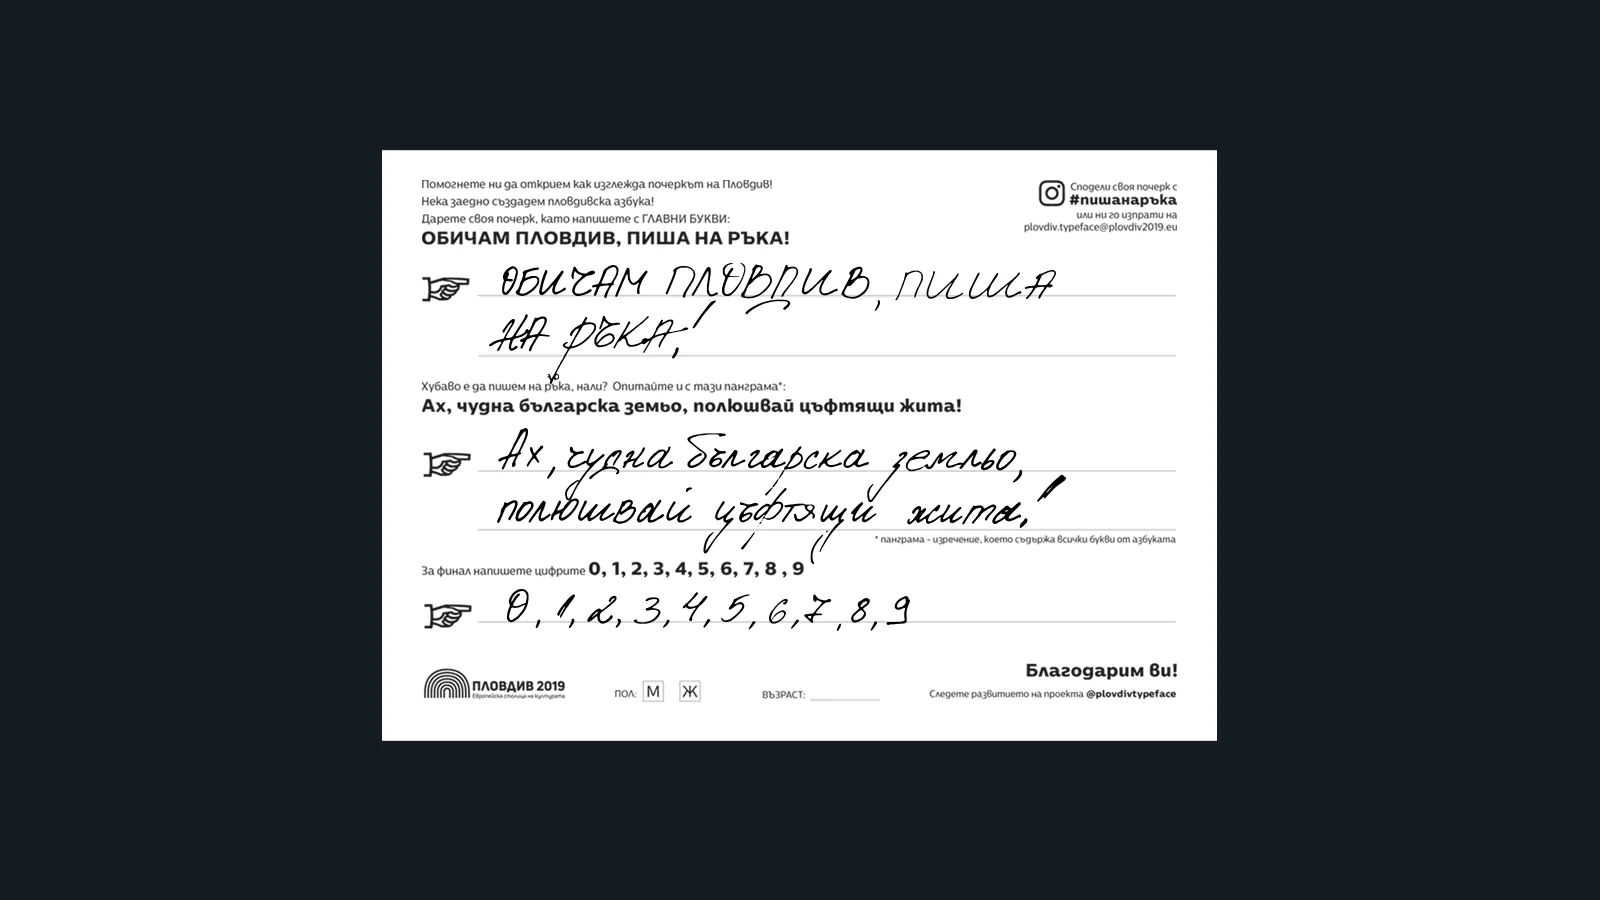 Помогнете ни да открием как изглежда почеркът на Пловдив!
Нека заедно създадем пловдивска азбука!
Дарете своя почерк, като напишете с ГЛАВНИ БУКВИ:
ОБИЧАМ ПЛОВДИВ, ПИША НА РЪКА!
Сподели своя почерк с
#пишанаръка
или ни го изпрати на
plovdiv.typeface@plovdiv2019.eu
ОБИЧАМ ПЛОВДИВ, ПИША
НА РЪКА!
Хубаво е да пишем на ръка, нали? Опитайте и с тази панграма*:
Ах, чудна българска земьо, полюшвай цъфтящи жита!
Ах, чудна българска земльо,
полюшвай цъфтящи жита!
* панграма - изречение, което съдържа всички букви от азбуката
За финал напишете цифрите 0, 1, 2, 3, 4, 5, 6, 7, 8 , 9
0, 1, 2, 3, 4, 5, 6, 7, 8, 9
ПЛОВДИВ 2019
Европейска столица на културата
ПОЛ: М Ж
ВЪЗРАСТ:
Благодарим ви!
Следете развитието на проекта @plovdivtypeface